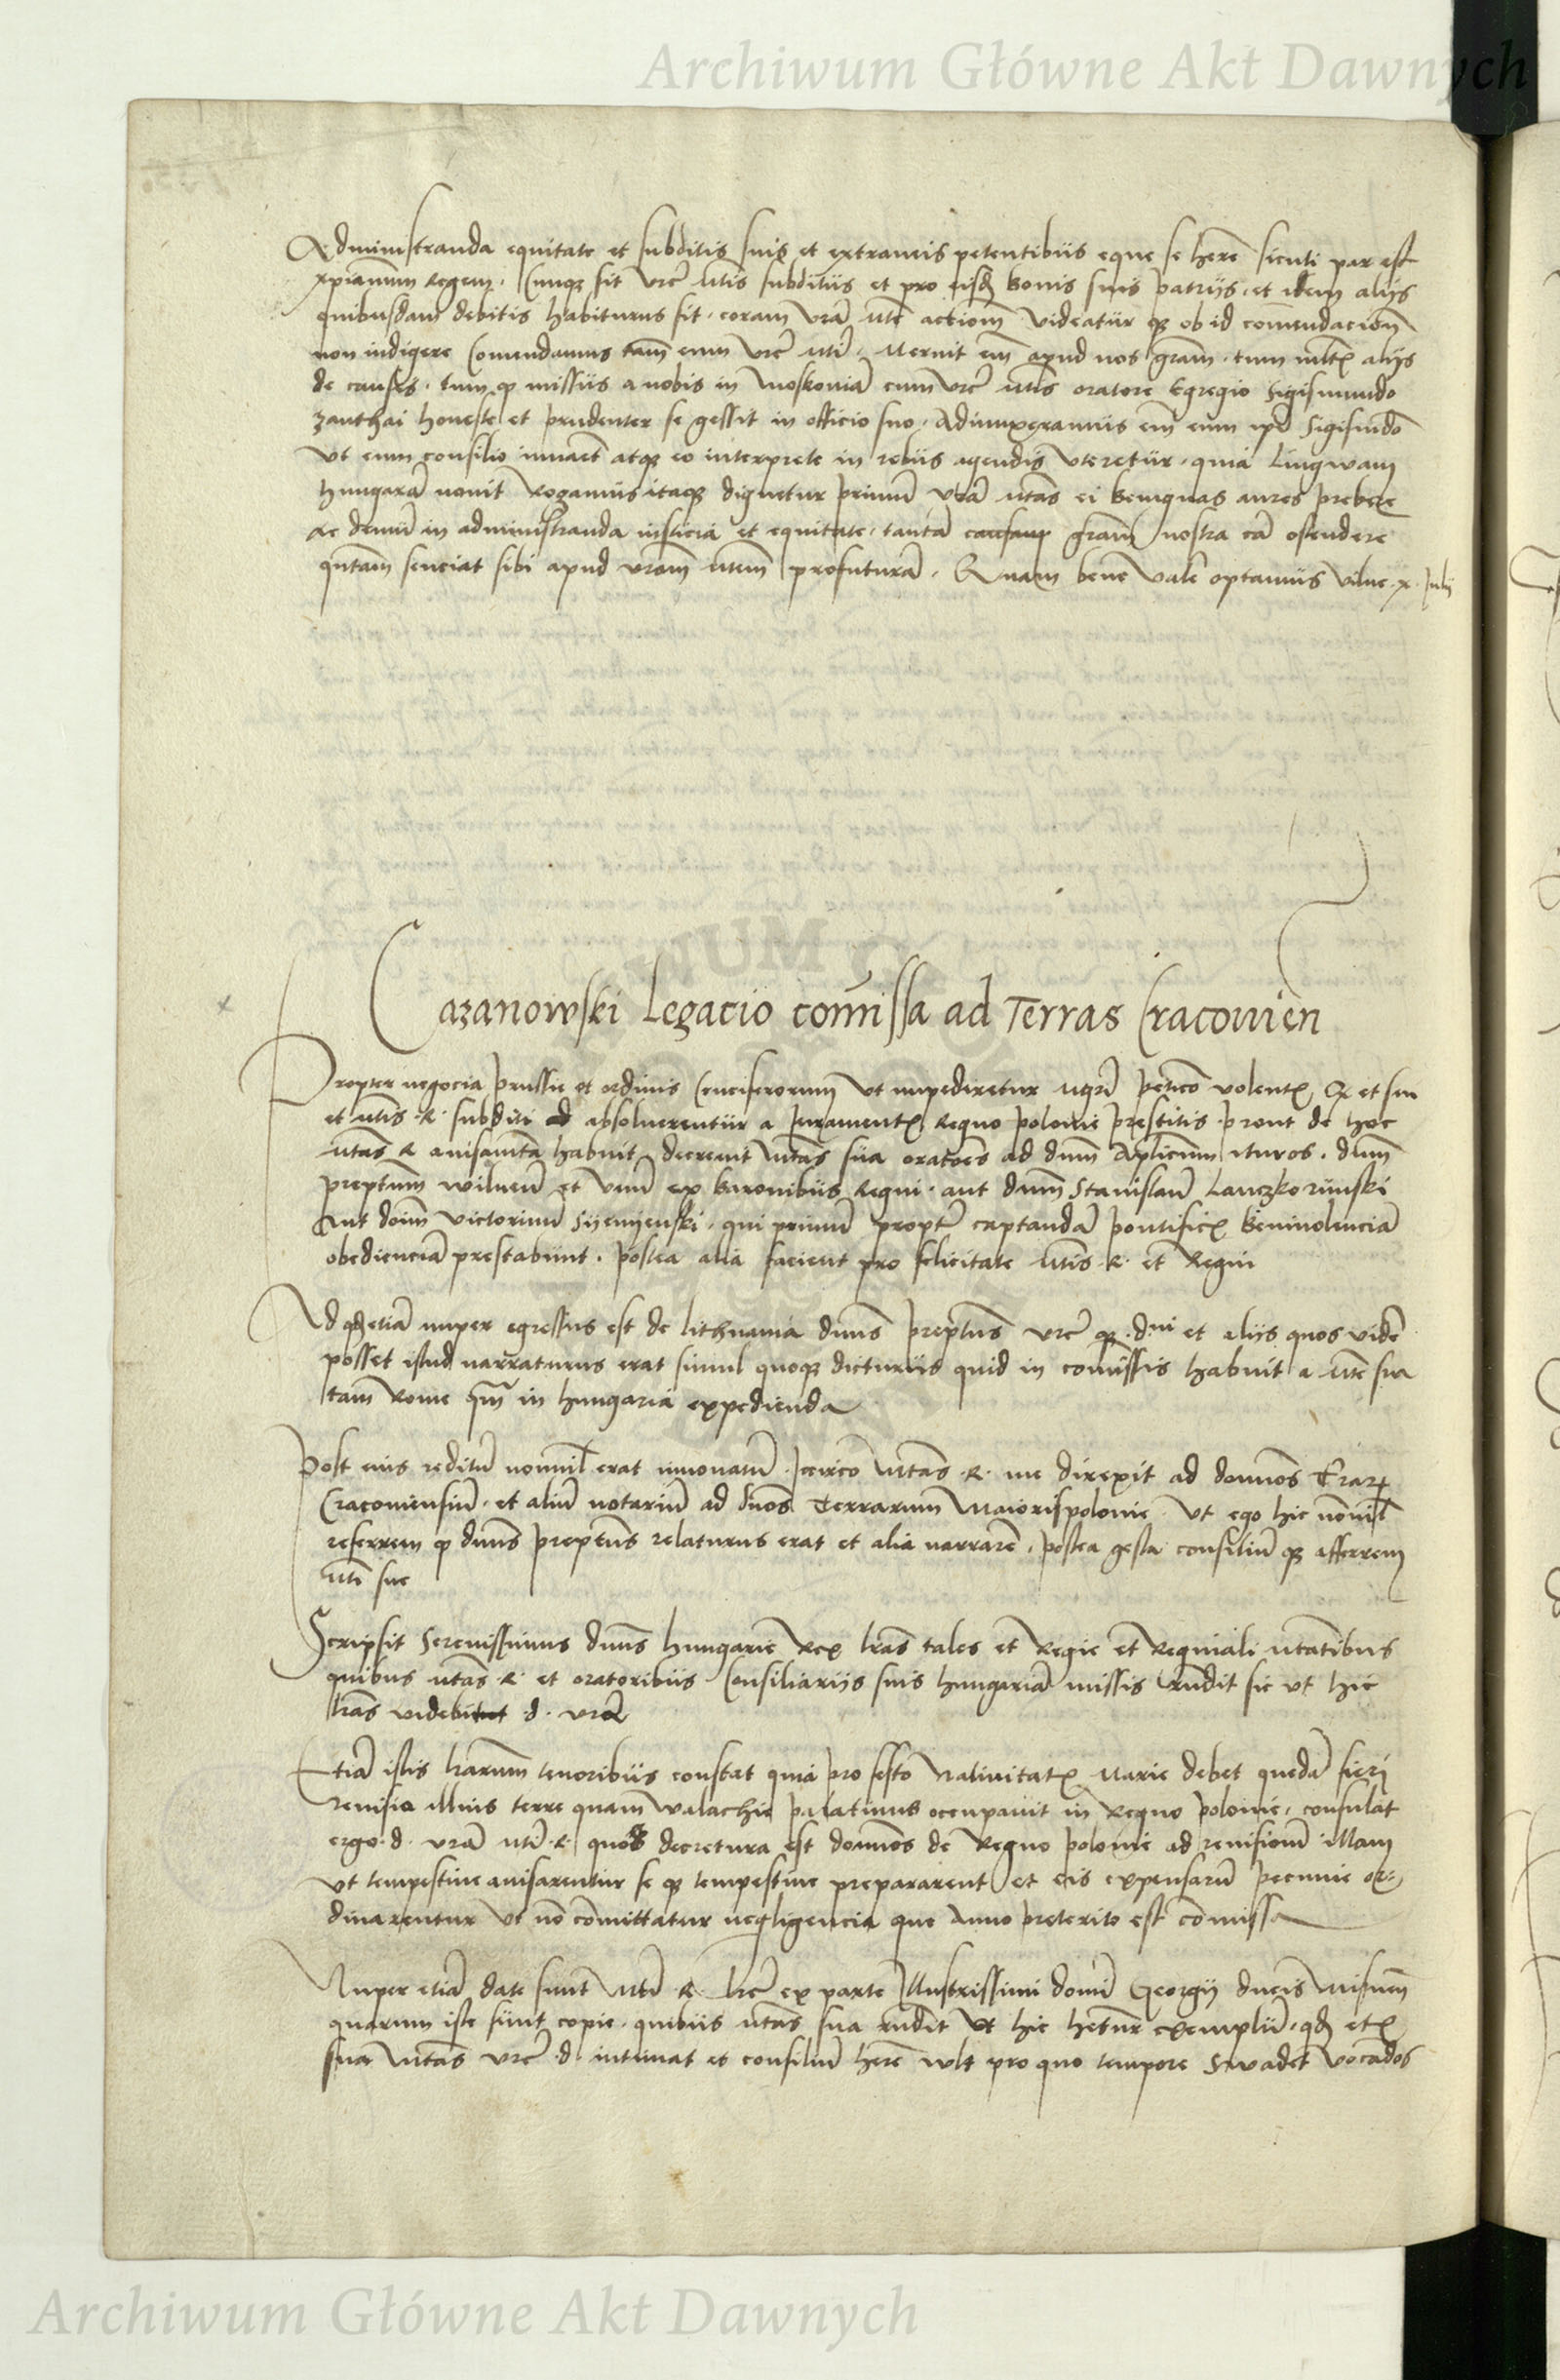 Archiwum Główne Akt Dawnych
Administranda equitate et subditis suis et extraneis petentibus eque se here sicuti par est
xpianum regem. Cumqz sit vre Mtis subditus et pro eisdem bonis suis patriis et idem aliis
quibusdam debitis habiturus sit coram vra Mte actiom videatur qz ob id comendacion
non indigere Comendamus tam eum vre Mti. Meruit em apud nos gram. tum multis aliis
de causis. tum qz missus a nobis in Moskouia cum vre Mtis oratore Egregio Sigismundo
Zanthai honeste et prudenter se gessit in officio suo. Adiunxeramus em eum ipi Sigismdo
vt eum consilio iuuaet atqz eo interprete in rebus agendis vteretur. quia Lingwam
hungara nouit Rogamus itaqz dignetur primu vra Mtas ei benignas aures prebere
ac demu in administranda iusticia et equitate. tanta gram nostra ca ostendere
quntam senciat sibi apud vram Mtem profutura. Quam bene vale optamus vilne. x. Julij
Cazanowski Legacio comissa ad Terras Cracouien
Propter negocia prussie et ordinis Cruciferorum vt impediretur petico volentis et sui
et Mtis R subditi absoluerentur a Juramentis Regno polonie prestitis prout de hoc
Mtas R auisamta habuit decreuit Mtas sua oratoes ad dnm Aplicum ituros. dnm
preptum wilnen et vnu ex baronibus Regni. aut dnm Stanislau Lanczkorunski
Aut doim victorinu Syemyenski. qui primu propter captanda pontificis beniuolencia
obediencia prestabunt. postea alia facient pro felicitate Mtis R et Regni
Ad qd etia nuper egressus est de lithuania dnus preptus vre qz dni et aliis quos vide
posset istud narraturus erat simul quoqz dicturus quid in comissis habuit a Mte sua
tam Rome qm in hungaria expedienda
Post eius reditu nonnil erat innouatu. Iccirco Mtas R. me direxit ad domos Trarz
Cracouiensiu. et aliu notariu ad dnos Terrarum Maiorispolonie. vt ego hic nonnil
referrem qz dnus preptus relaturus erat et alia narrare. postea gesta consiliu qz afferrem
Mti sue
Scripsit Serenissimus dnus hungarie Rex lras tales et Regie et Regniali Mtatibus
quibus Mtas R et oratoribus Consiliariis suis hungaria missis rndit sic vt hic
lras videbit d. vra
Etia istis lrarum tenoribus constat quia pro festo Natiuitatis Marie debet queda fieri
reuisio illius terre quam walachie palatinus occupauit in Regno polonie. consulat
ergo d. vra Mti R quos decretura est domos de Regno polonie ad reuisionu illam
vt tempestiue auisarentur se qz tempestiue prepararent et eis expensaru pecunie or-
dinarentur vt no comittatur negligencia que Anno preterito est comissa
Nuper etia date sunt Mti R lre ex parte Illustrissimi domi Georgij ducis Misnen
quarum iste sunt copie. quibus Mtas sua rndit vt hic hetur exemplu. qd etx
sua Mtas vre d. intimat et consiliu here wlt pro quo tempore Swadet vocados
Archiwum Główne Akt Dawnych